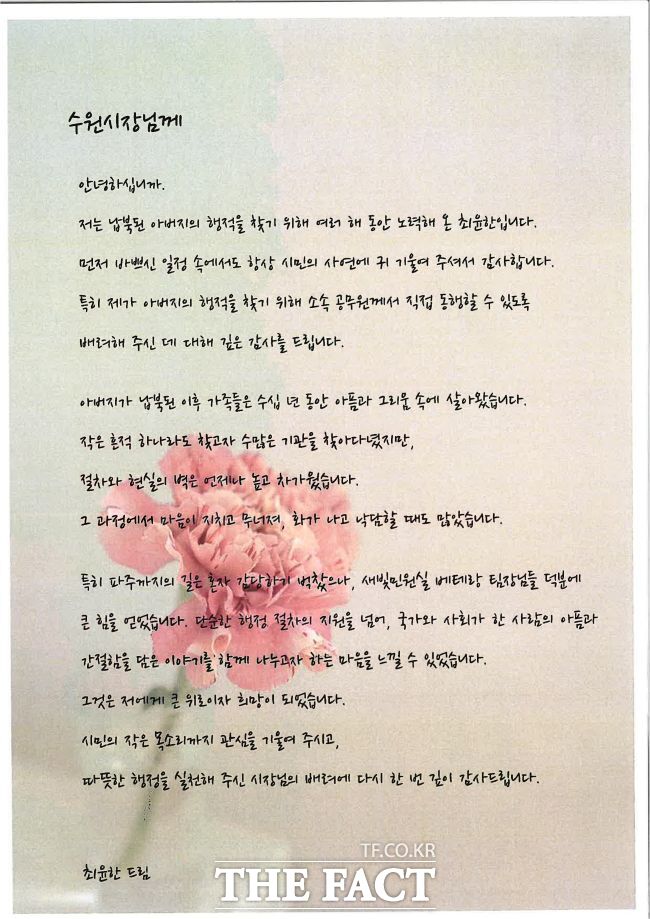 수원시장님께
안녕하십니까.
저는 납북된 아버지의 행적을 찾기 위해 여러 해 동안 노력해 온 최윤한입니다.
먼저 바쁘신 일정 속에서도 항상 시민의 사연에 귀 기울여 주셔서 감사합니다.
특히 제가 아버지의 행적을 찾기 위해 소속 공무원께서 직접 동행할 수 있도록
배려해 주신 데 대해 깊은 감사를 드립니다.
아버지가 납북된 이후 가족들은 수십 년 동안 아픔과 그리움 속에 살아왔습니다.
작은 흔적 하나라도 찾고자 수많은 기관을 찾아다녔지만,
절차와 현실의 벽은 언제나 높고 차가웠습니다.
그 과정에서 마음이 지치고 무너져, 화가 나고 낙담할 때도 많았습니다.
특히 파주까지의 길은 혼자 감당하기 벅찼으나, 새빛민원실 베테랑 팀장님들 덕분에
큰 힘을 얻었습니다. 단순한 행정 절차의 지원을 넘어, 국가와 사회가 한 사람의 아픔과
간절함을 담은 이야기를 함께 나누고자 하는 마음을 느낄 수 있었습니다.
그것은 저에게 큰 위로이자 희망이 되었습니다.
시민의 작은 목소리까지 관심을 기울여 주시고,
따뜻한 행정을 실천해 주신 시장님의 배려에 다시 한 번 깊이 감사드립니다.
최윤한 드림
TF.CO.KR
THE FACT